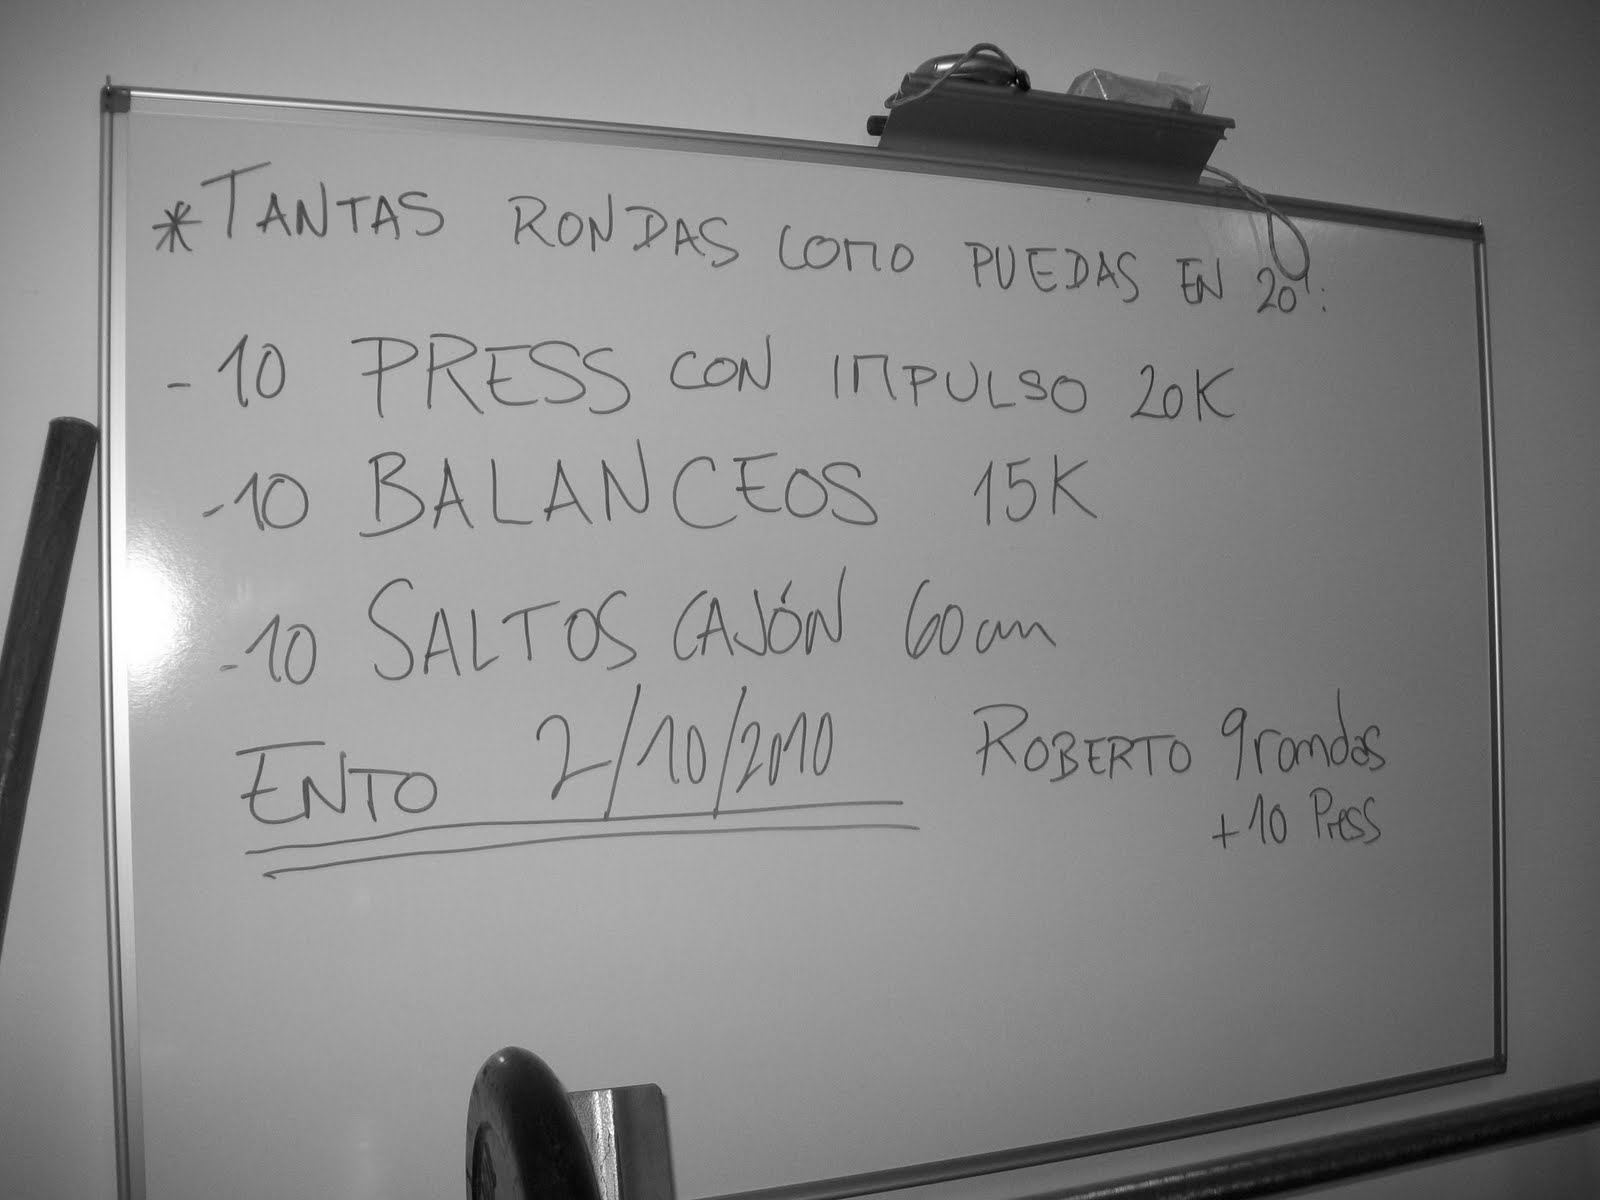 *TANTAS RONDAS COMO PUEDAS EN 20':
-10 PRESS CON IMPULSO 20K
-10 BALANCEOS 15K
-10 SALTOS CAJÓN 60cm
ENTO 2/10/2010
ROBERTO 9 rondas
+10 Press